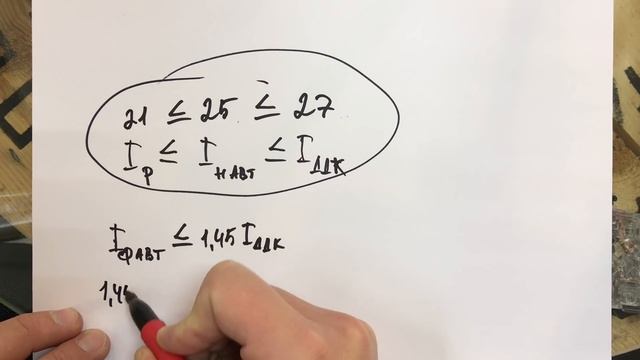 21 ≤ 25 ≤ 27
I_р ≤ I_н авт ≤ I_ДДК
I_ф авт ≤ 1,45 I_ДДК
1,45